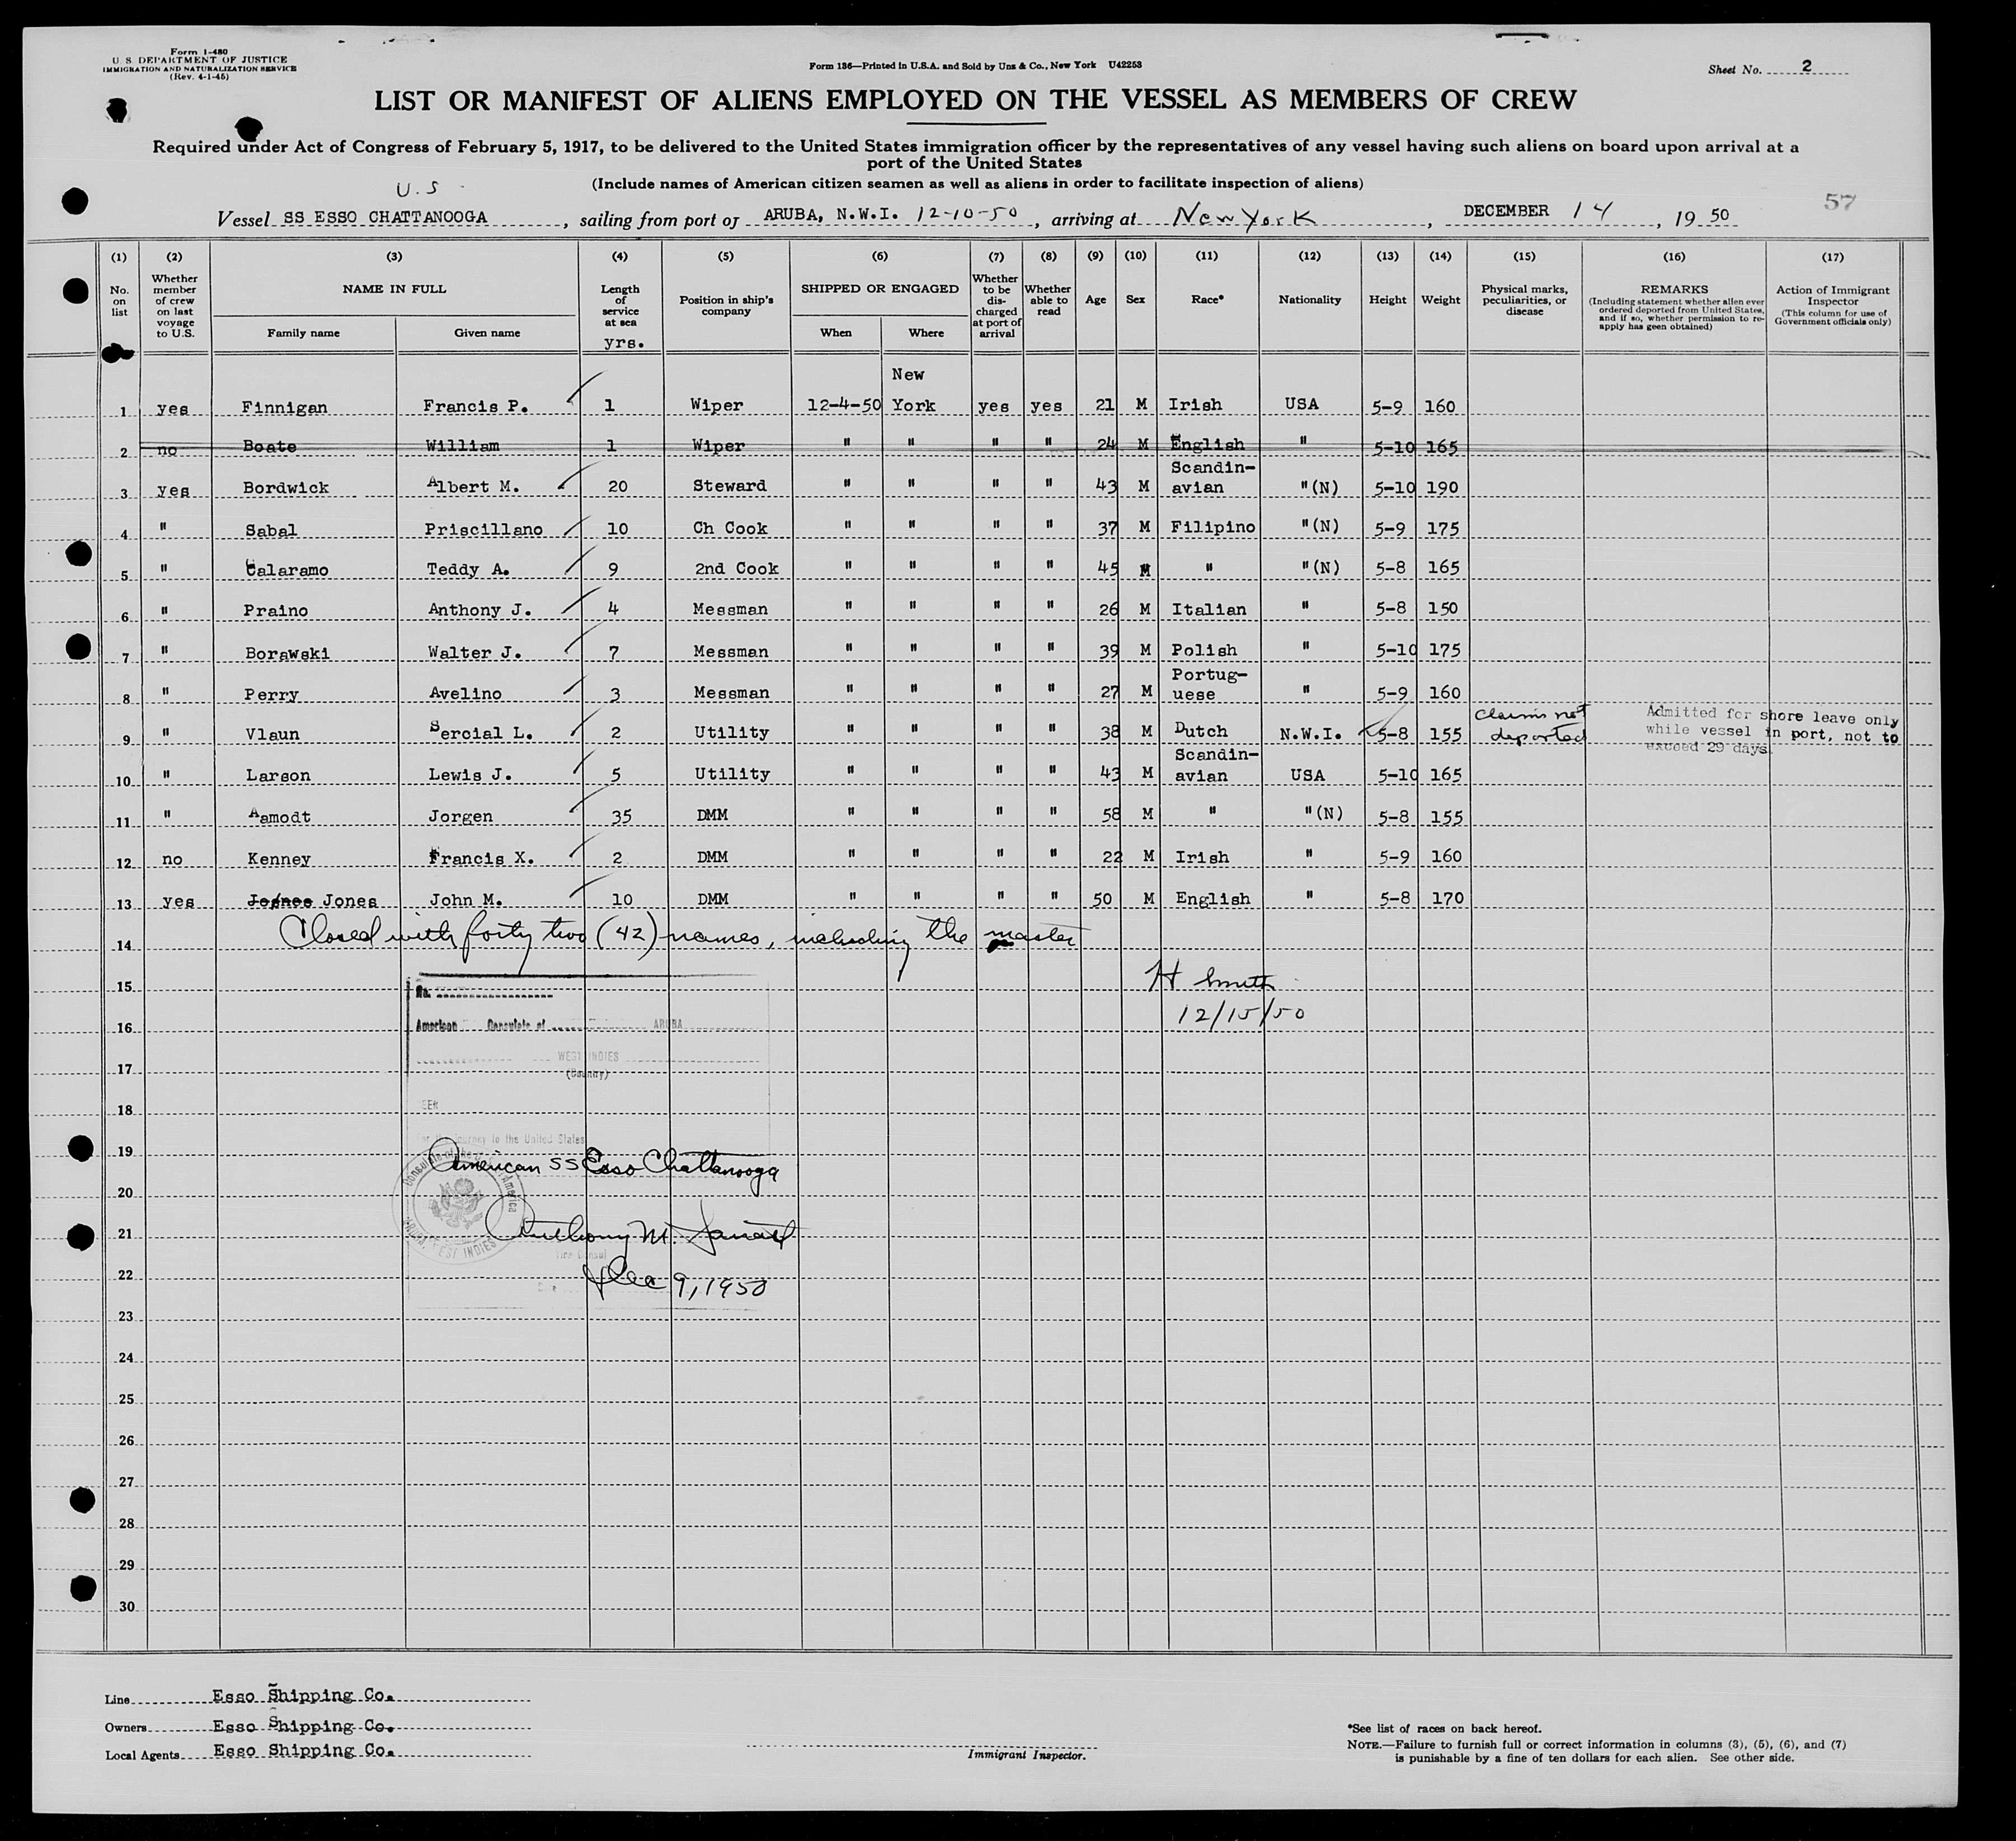 Form I-480
U. S. DEPARTMENT OF JUSTICE
IMMIGRATION AND NATURALIZATION SERVICE
(Rev. 4-1-45)
Form 136—Printed in U.S.A. and Sold by Unz & Co., New York U42253
Sheet No. 2
LIST OR MANIFEST OF ALIENS EMPLOYED ON THE VESSEL AS MEMBERS OF CREW
Required under Act of Congress of February 5, 1917, to be delivered to the United States immigration officer by the representatives of any vessel having such aliens on board upon arrival at a
port of the United States
(Include names of American citizen seamen as well as aliens in order to facilitate inspection of aliens)
U.S
57
Vessel SS ESSO CHATTANOOGA, sailing from port of ARUBA, N.W.I. 12-10-50, arriving at New York, DECEMBER 14, 19 50
(1) (2) (3) (4) (5) (6) (7) (8) (9) (10) (11) (12) (13) (14) (15) (16) (17)
No. on list
Whether member of crew on last voyage to U.S.
NAME IN FULL
Family name Given name
Length of service at sea
yrs.
Position in ship's company
SHIPPED OR ENGAGED
When Where
Whether to be discharged at port of arrival
Whether able to read
Age Sex Race* Nationality Height Weight
Physical marks, peculiarities, or disease
REMARKS
(Including statement whether alien ever ordered deported from United States, and if so, whether permission to re-apply has geen obtained)
Action of Immigrant Inspector
(This column for use of Government officials only)
New
1 yes Finnigan Francis P. 1 Wiper 12-4-50 York yes yes 21 M Irish USA 5-9 160
2 no Boate William 1 Wiper " " " " 24 M English " 5-10 165
Scandin-
3 yes Bordwick Albert M. 20 Steward " " " " 43 M avian "(N) 5-10 190
4 " Sabal Priscillano 10 Ch Cook " " " " 37 M Filipino "(N) 5-9 175
5 " Calaramo Teddy A. 9 2nd Cook " " " " 45 M " "(N) 5-8 165
6 " Praino Anthony J. 4 Messman " " " " 26 M Italian " 5-8 150
7 " Borawski Walter J. 7 Messman " " " " 39 M Polish " 5-10 175
Portug-
8 " Perry Avelino 3 Messman " " " " 27 M uese " 5-9 160
9 " Vlaun Sercial L. 2 Utility " " " " 38 M Dutch N.W.I. 5-8 155 claims not deported Admitted for shore leave only while vessel in port, not to exceed 29 days
Scandin-
10 " Larson Lewis J. 5 Utility " " " " 43 M avian USA 5-10 165
11 " Aamodt Jorgen 35 DMM " " " " 58 M " "(N) 5-8 155
12 no Kenney Francis X. 2 DMM " " " " 22 M Irish " 5-9 160
13 yes Jones John M. 10 DMM " " " " 50 M English " 5-8 170
14 Closed with forty two (42) names, including the master
15 No. H Smith
16 American Consulate of ARUBA 12/15/50
WEST INDIES
17 (Country)
18
for the journey to the United States
19 American SS Esso Chattanooga
20
21 Anthony M.
Vice Consul
22 Dec 9, 1950
Consulate of the America
ARUBA, WEST INDIES
23
24
25
26
27
28
29
30
Line Esso Shipping Co.
Owners Esso Shipping Co.
Local Agents Esso Shipping Co.
Immigrant Inspector.
*See list of races on back hereof.
NOTE.—Failure to furnish full or correct information in columns (3), (5), (6), and (7)
is punishable by a fine of ten dollars for each alien. See other side.